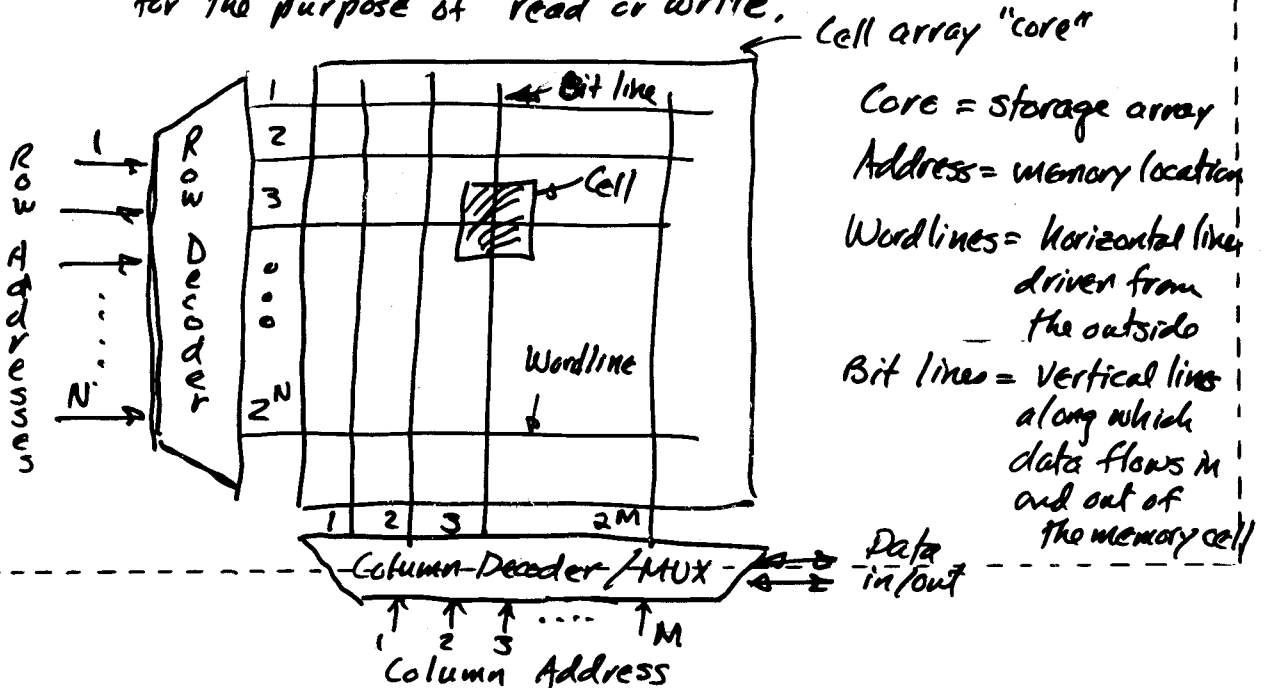 for the purpose of read or write.
Cell array "core"
Bit line
Cell
Wordline
Row Addresses
1
N
Row Decoder
1
2
3
2^N
1 2 3 2^M
Column Decoder / MUX
Data
in/out
1 2 3 .... M
Column Address
Core = storage array
Address = memory location
Wordlines = horizontal line
driven from
the outside
Bit lines = vertical line
along which
data flows in
and out of
the memory cell